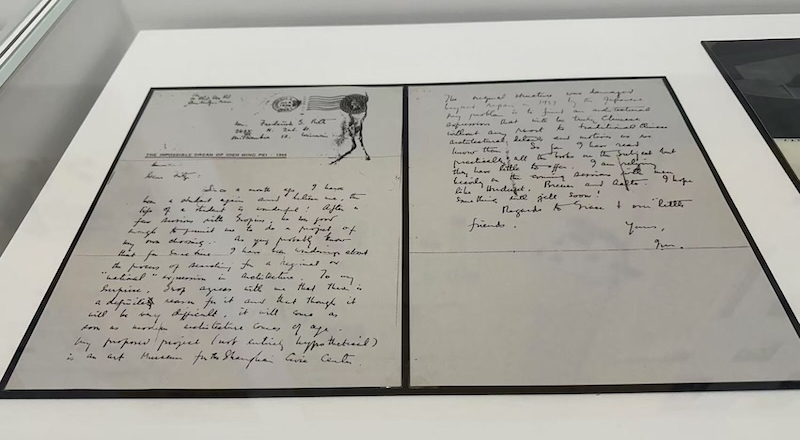 Mr. Frederick S. Roth
THE IMPOSSIBLE DREAM OF IEOH MING PEI - 1946
Dear Fritz,
Since a month ago I have
been a student again and believe me, the
life of a student is wonderful. After a
few sessions with Gropius, he was good
enough to permit me to do a project of
my own choosing. As you probably know
that for some time I have been wondering about
the process of searching for a regional or
"national" expression in architecture. To my
surprise, Grop agrees with me that there is
a definite reason for it and that though it
will be very difficult, it will come as
soon as modern architecture comes of age.
My proposed project (not entirely hypothetical)
is an Art Museum for the Shanghai Civic Center.
The original structure was damaged
beyond repair in by the Japanese
My problem is to find an architectural
expression that will be truly Chinese
without any resort to traditional Chinese
architectural details and motives as we
know them. So far I have read
practically all the books on the subject but
they have little to offer. I am relying
heavily on the coming sessions with men
like Hudnut, Breuer and Aalto. I hope
something will jell soon!
Regards to Grace & our little
friends. Yours,